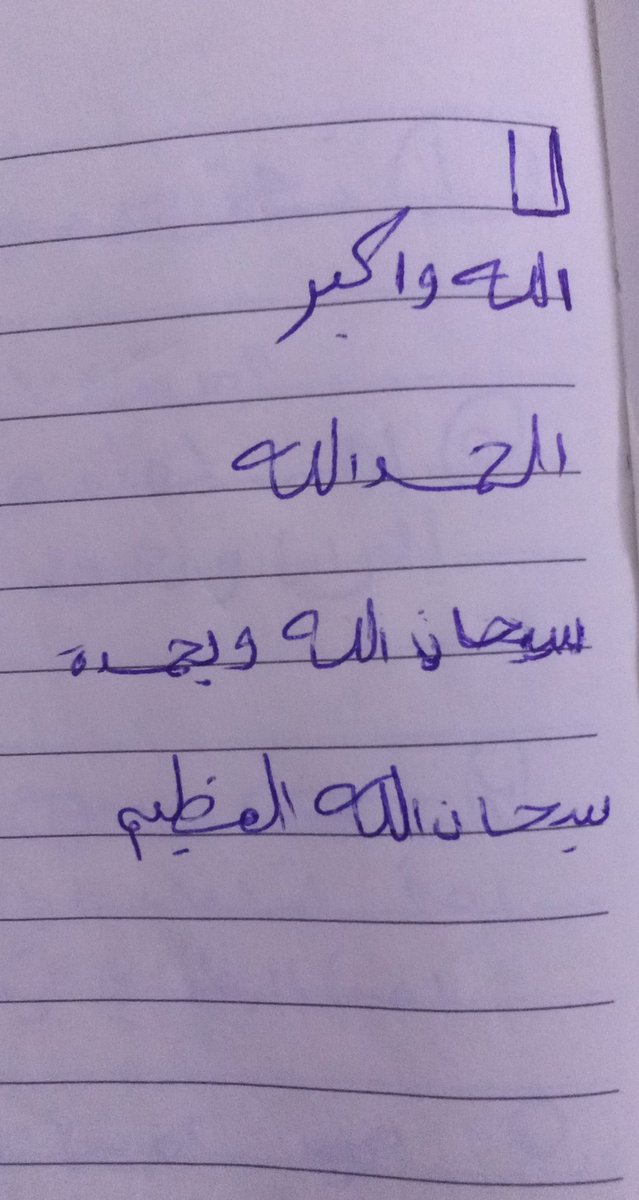 الله واكبر
الحمد الله
سبحان الله وبحمدة
سبحان الله العظيم